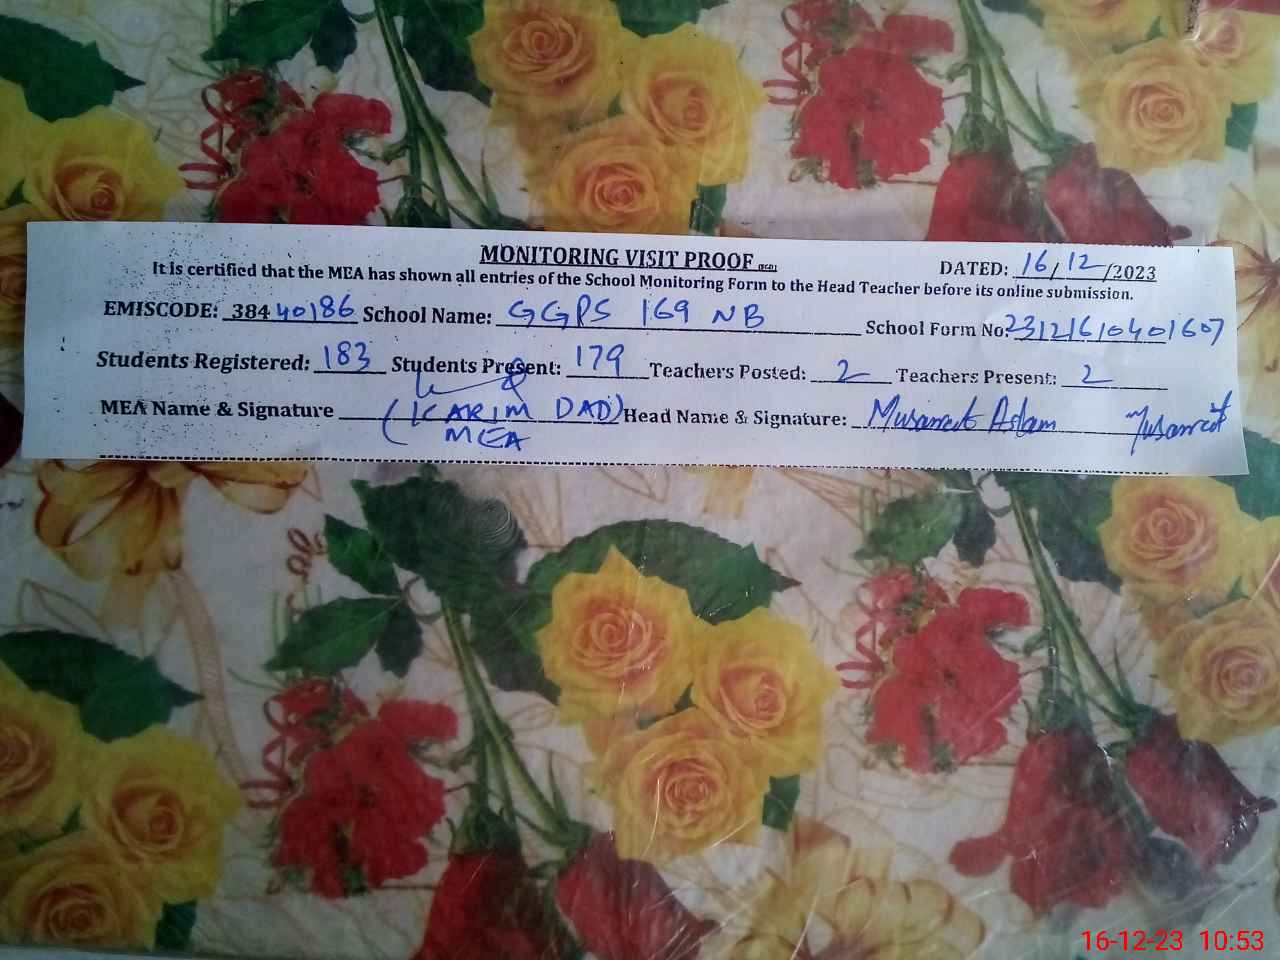 MONITORING VISIT PROOF
DATED: 16/12/2023
It is certified that the MEA has shown all entries of the School Monitoring Form to the Head Teacher before its online submission.
EMISCODE: 38440186 School Name: GGPS 169 NB School Form No: 23121610401607
Students Registered: 183 Students Present: 179 Teachers Posted: 2 Teachers Present: 2
MEA Name & Signature (KARIM DAD) Head Name & Signature: Musarrat Aslam Musarrat
MEA
16-12-23 10:53